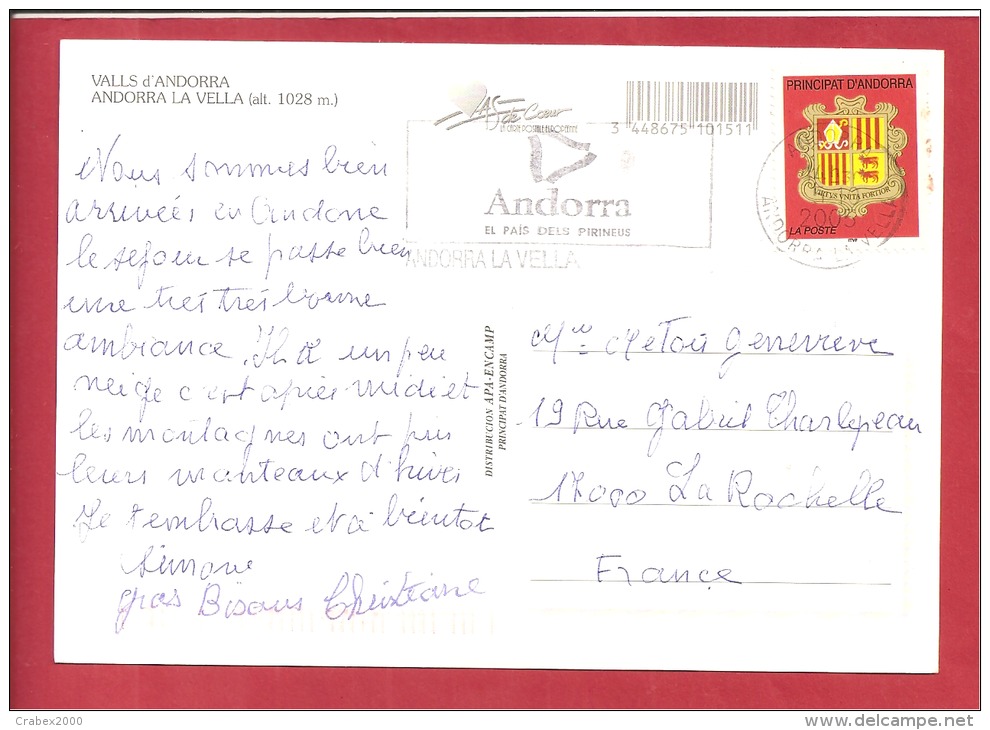 VALLS d'ANDORRA
ANDORRA LA VELLA (alt. 1028 m.)
AS de Cœur
LA CARTE POSTALE EUROPEENNE
3 448675 101511
PRINCIPAT D'ANDORRA
VIRTVS VNITA FORTIOR
LA POSTE
2003
ANDORRA LA VELLA
Andorra
EL PAÍS DELS PIRINEUS
ANDORRA LA VELLA
Nous sommes bien
arrivées en Andorre
le sejour se passe bien
une tres tres bonne
ambiance. Il a un peu
neige c'est apres midi et
les montagnes ont pris
leurs manteaux d'hiver
Je t'embrasse et a bientot
Simone
gros Bisous Christiane
DISTRIBUCION APA - ENCAMP
PRINCIPAT D'ANDORRA
Genevieve
19 Rue Gabriel Charlepeau
17000 La Rochelle
France
Crabex2000
delcampe.net